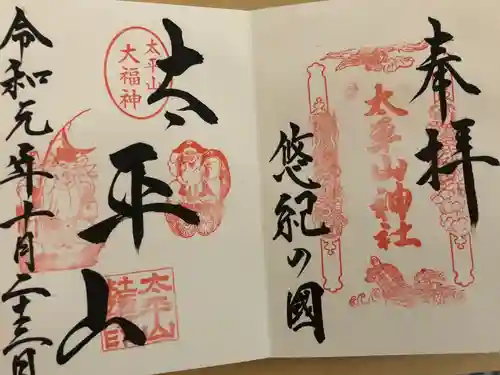 奉拝
太平山神社
悠紀の國
太平山
太平山
大福神
太平山
社務所印
令和元年十月二十三日